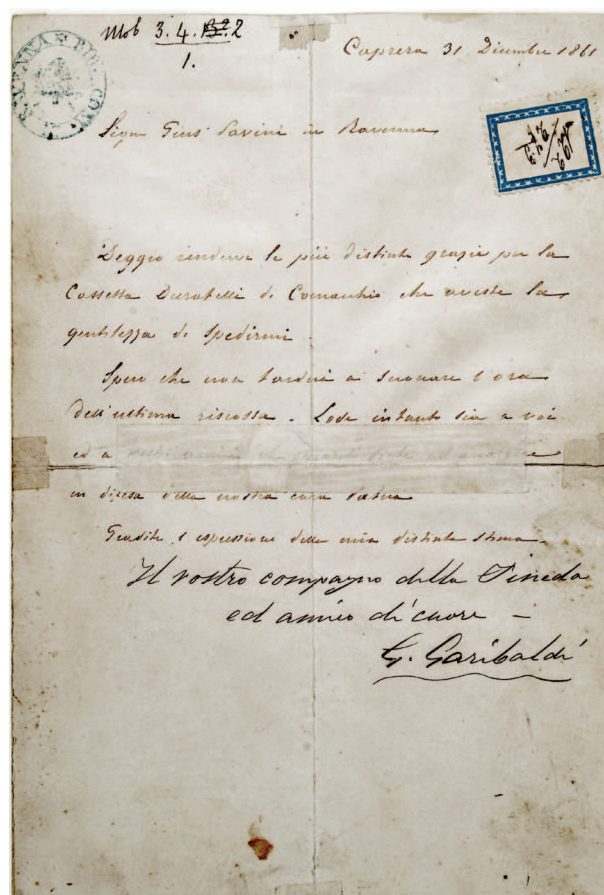 Mob 3. 4. 2
1.
RAVENNA
Caprera 31. Dicembre 1861
Sigr Gius Savini in Ravenna
Deggio rendervi le più distinte grazie per la
Cassetta di Comacchio che aveste la
gentilezza di spedirmi.
Spero che non tarderà a suonare l'ora
dell'ultima riscossa. Lode intanto sia a voi
ed a vostri
in difesa della nostra cara Patria
Gradite l'espressione della mia distinta stima.
Il vostro compagno della Pineda
ed amico di cuore —
G. Garibaldi